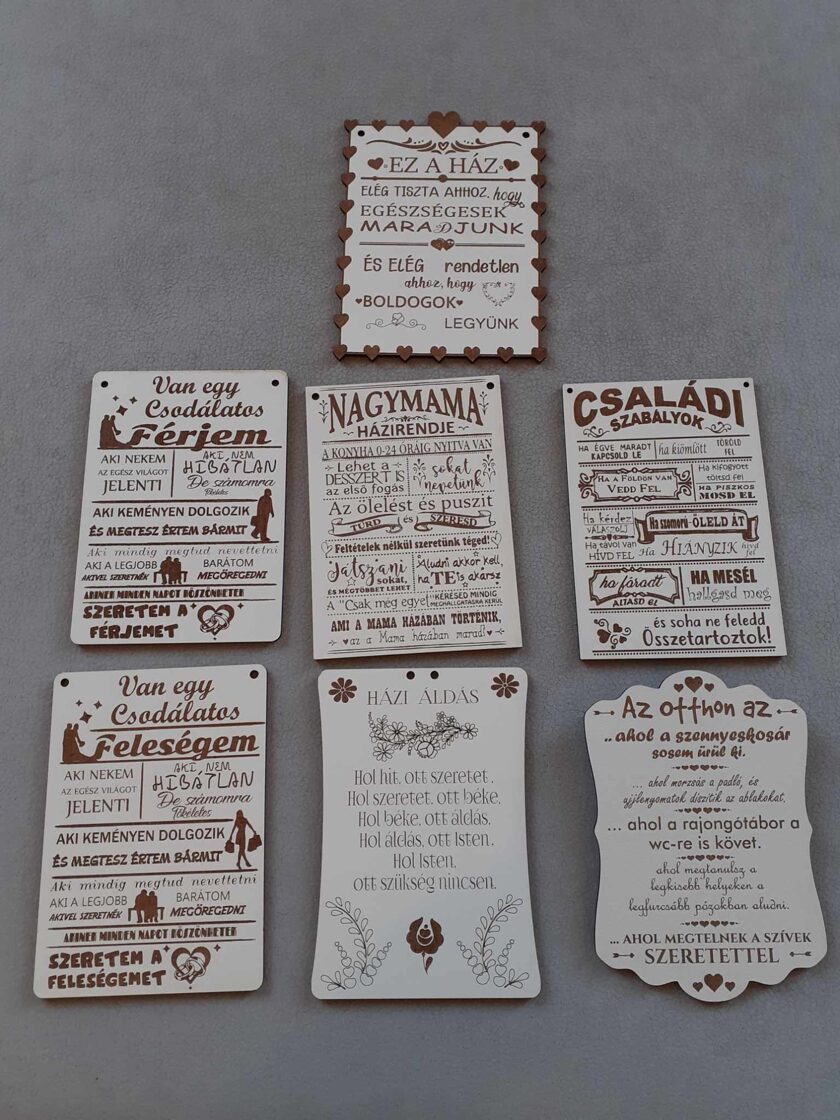 EZ A HÁZ
ELÉG TISZTA AHHOZ, hogy
EGÉSZSÉGESEK
MARADJUNK
ÉS ELÉG rendetlen
ahhoz, hogy
BOLDOGOK
LEGYÜNK
Van egy
Csodálatos
Férjem
AKI NEKEM
AZ EGÉSZ VILÁGOT
JELENTI
AKI, NEM
HIBÁTLAN
De számomra
Tökéletes
AKI KEMÉNYEN DOLGOZIK
ÉS MEGTESZ ÉRTEM BÁRMIT
Aki mindig megtud nevettetni
AKI A LEGJOBB BARÁTOM
AKIVEL SZERETNÉK MEGÖREGEDNI
AKINEK MINDEN NAPOT KÖSZÖNHETEK
SZERETEM A
FÉRJEMET
NAGYMAMA
HÁZIRENDJE
A KONYHA 0-24 ÓRÁIG NYITVA VAN
Lehet a
DESSZERT IS
az első fogás
sokat
nevetünk!
Az ölelést és puszit
TŰRD és SZERESD
Feltételek nélkül szeretünk téged!
Játszani
sokat,
ÉS MÉGTÖBBET LEHET
Aludni akkor kell,
ha TE is akarsz
A "Csak még egyet
KÉRÉSED MINDIG
MEGHALLGATÁSRA KERÜL
AMI A MAMA HÁZÁBAN TÖRTÉNIK,
az a Mama házában marad!
CSALÁDI
SZABÁLYOK
HA ÉGVE MARADT
KAPCSOLD LE
ha kiömlött
TÖRÖLD
FEL
HA A FÖLDÖN VAN
VEDD FEL
Ha kifogyott
töltsd fel
HA PISZKOS
MOSD EL
Ha kérdez
VÁLASZOLJ
Ha szomorú ÖLELD ÁT
Ha távol van
HÍVD FEL
Ha HIÁNYZIK hívd
fel
ha fáradt
ALTASD el
HA MESÉL
hallgasd meg
és soha ne feledd
Összetartoztok!
Van egy
Csodálatos
Feleségem
AKI NEKEM
AZ EGÉSZ VILÁGOT
JELENTI
AKI, NEM
HIBÁTLAN
De számomra
Tökéletes
AKI KEMÉNYEN DOLGOZIK
ÉS MEGTESZ ÉRTEM BÁRMIT
Aki mindig megtud nevettetni
AKI A LEGJOBB BARÁTOM
AKIVEL SZERETNÉK MEGÖREGEDNI
AKINEK MINDEN NAPOT KÖSZÖNHETEK
SZERETEM A
FELESÉGEMET
HÁZI ÁLDÁS
Hol hit, ott szeretet,
Hol szeretet, ott béke,
Hol béke, ott áldás,
Hol áldás, ott Isten,
Hol Isten,
ott szükség nincsen.
Az otthon az
..ahol a szennyeskosár
sosem ürül ki.
... ahol morzsás a padló, és
ujjlenyomatok díszítik az ablakokat,
... ahol a rajongótábor a
wc-re is követ.
ahol megtanulsz a
legkisebb helyeken a
legfurcsább pózokban aludni.
... AHOL MEGTELNEK A SZÍVEK
SZERETETTEL